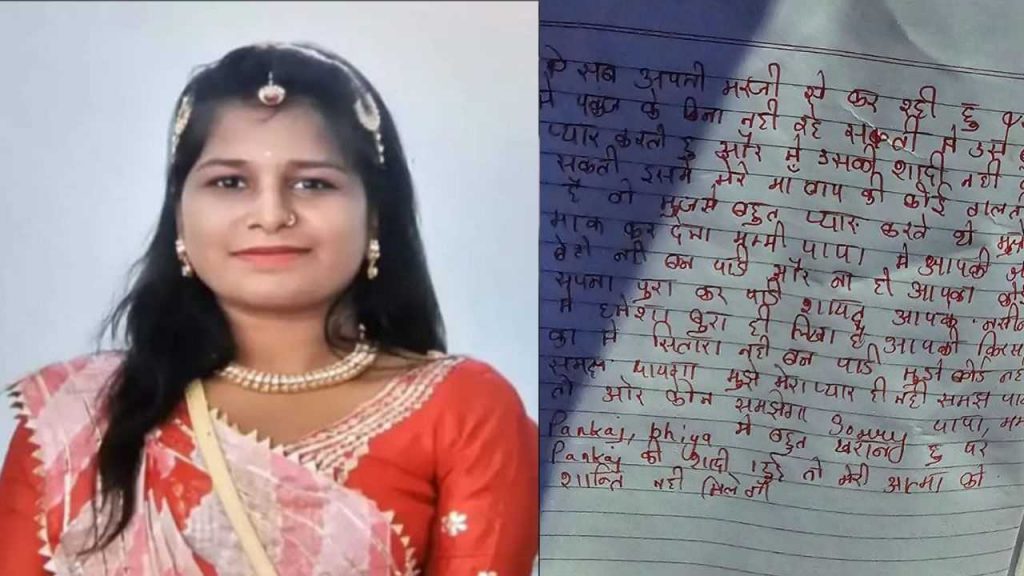 ये सब अपनी मरजी से कर रही हु
मे पंकज के बिना नही रह सकती मे उसे
प्यार करती हु और में उसकी शादी नही
सकती इसमे मेरे माँ बाप की कोई गलती
है वो मुजसे बहुत प्यार करते थे मुझे
माफ कर देना मुम्मी पापा मे आपकी
बेटी नही बन पाई और ना ही आपका कोई
सपना पुरा कर पाई शायद आपके नसीब
मे हमेशा बुरा ही लिखा है आपकी किस्मत
का मे सितारा नही बन पाई मुझे कोई नही
समझ पायेगा मुझे मेरा प्यार ही नही समझ पाया
तो ओर कोन समझेगा Sorry पापा, मम्मी
Pankaj, bhiya में बहुत खराब हु पर
Pankaj की शादी हुई तो मेरी आत्मा को
शान्ति नही मिलेगी